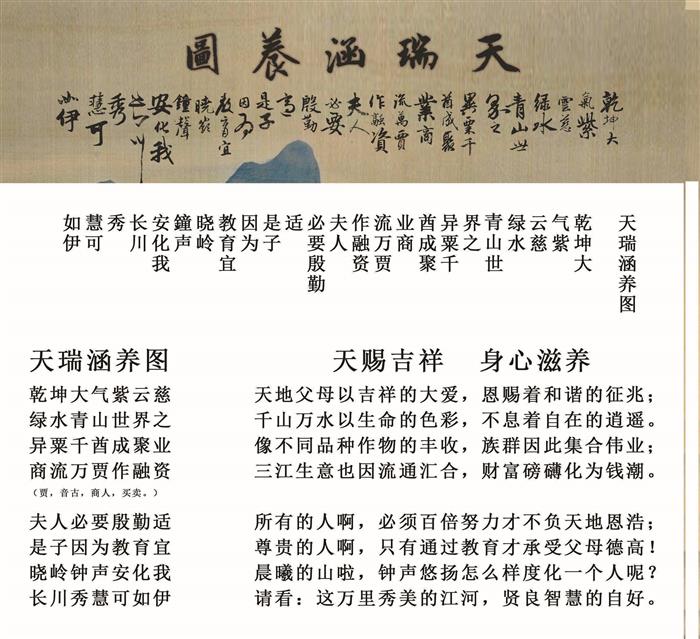 天瑞涵養圖
乾坤大
氣紫
雲慈
綠水
青山世
界之
異粟千
酋成聚
業商
流萬賈
作融資
夫人
必要
殷勤
適
是子
因為
教育宜
曉嶺
鐘聲
安化我
長川
秀
慧可
如伊
天瑞涵养图
乾坤大
气紫
云慈
绿水
青山世
界之
异粟千
酋成聚
业商
流万贾
作融资
夫人
必要殷勤
适
是子
因为
教育宜
晓岭
鐘声
安化我
长川
秀
慧可
如伊
天瑞涵养图
乾坤大气紫云慈
绿水青山世界之
异粟千酋成聚业
商流万贾作融资
（贾，音古，商人，买卖。）
夫人必要殷勤适
是子因为教育宜
晓岭钟声安化我
长川秀慧可如伊
天赐吉祥 身心滋养
天地父母以吉祥的大爱，恩赐着和谐的征兆；
千山万水以生命的色彩，不息着自在的逍遥。
像不同品种作物的丰收，族群因此集合伟业；
三江生意也因流通汇合，财富磅礴化为钱潮。
所有的人啊，必须百倍努力才不负天地恩浩；
尊贵的人啊，只有通过教育才承受父母德高！
晨曦的山啦，钟声悠扬怎么样度化一个人呢？
请看：这万里秀美的江河，贤良智慧的自好。